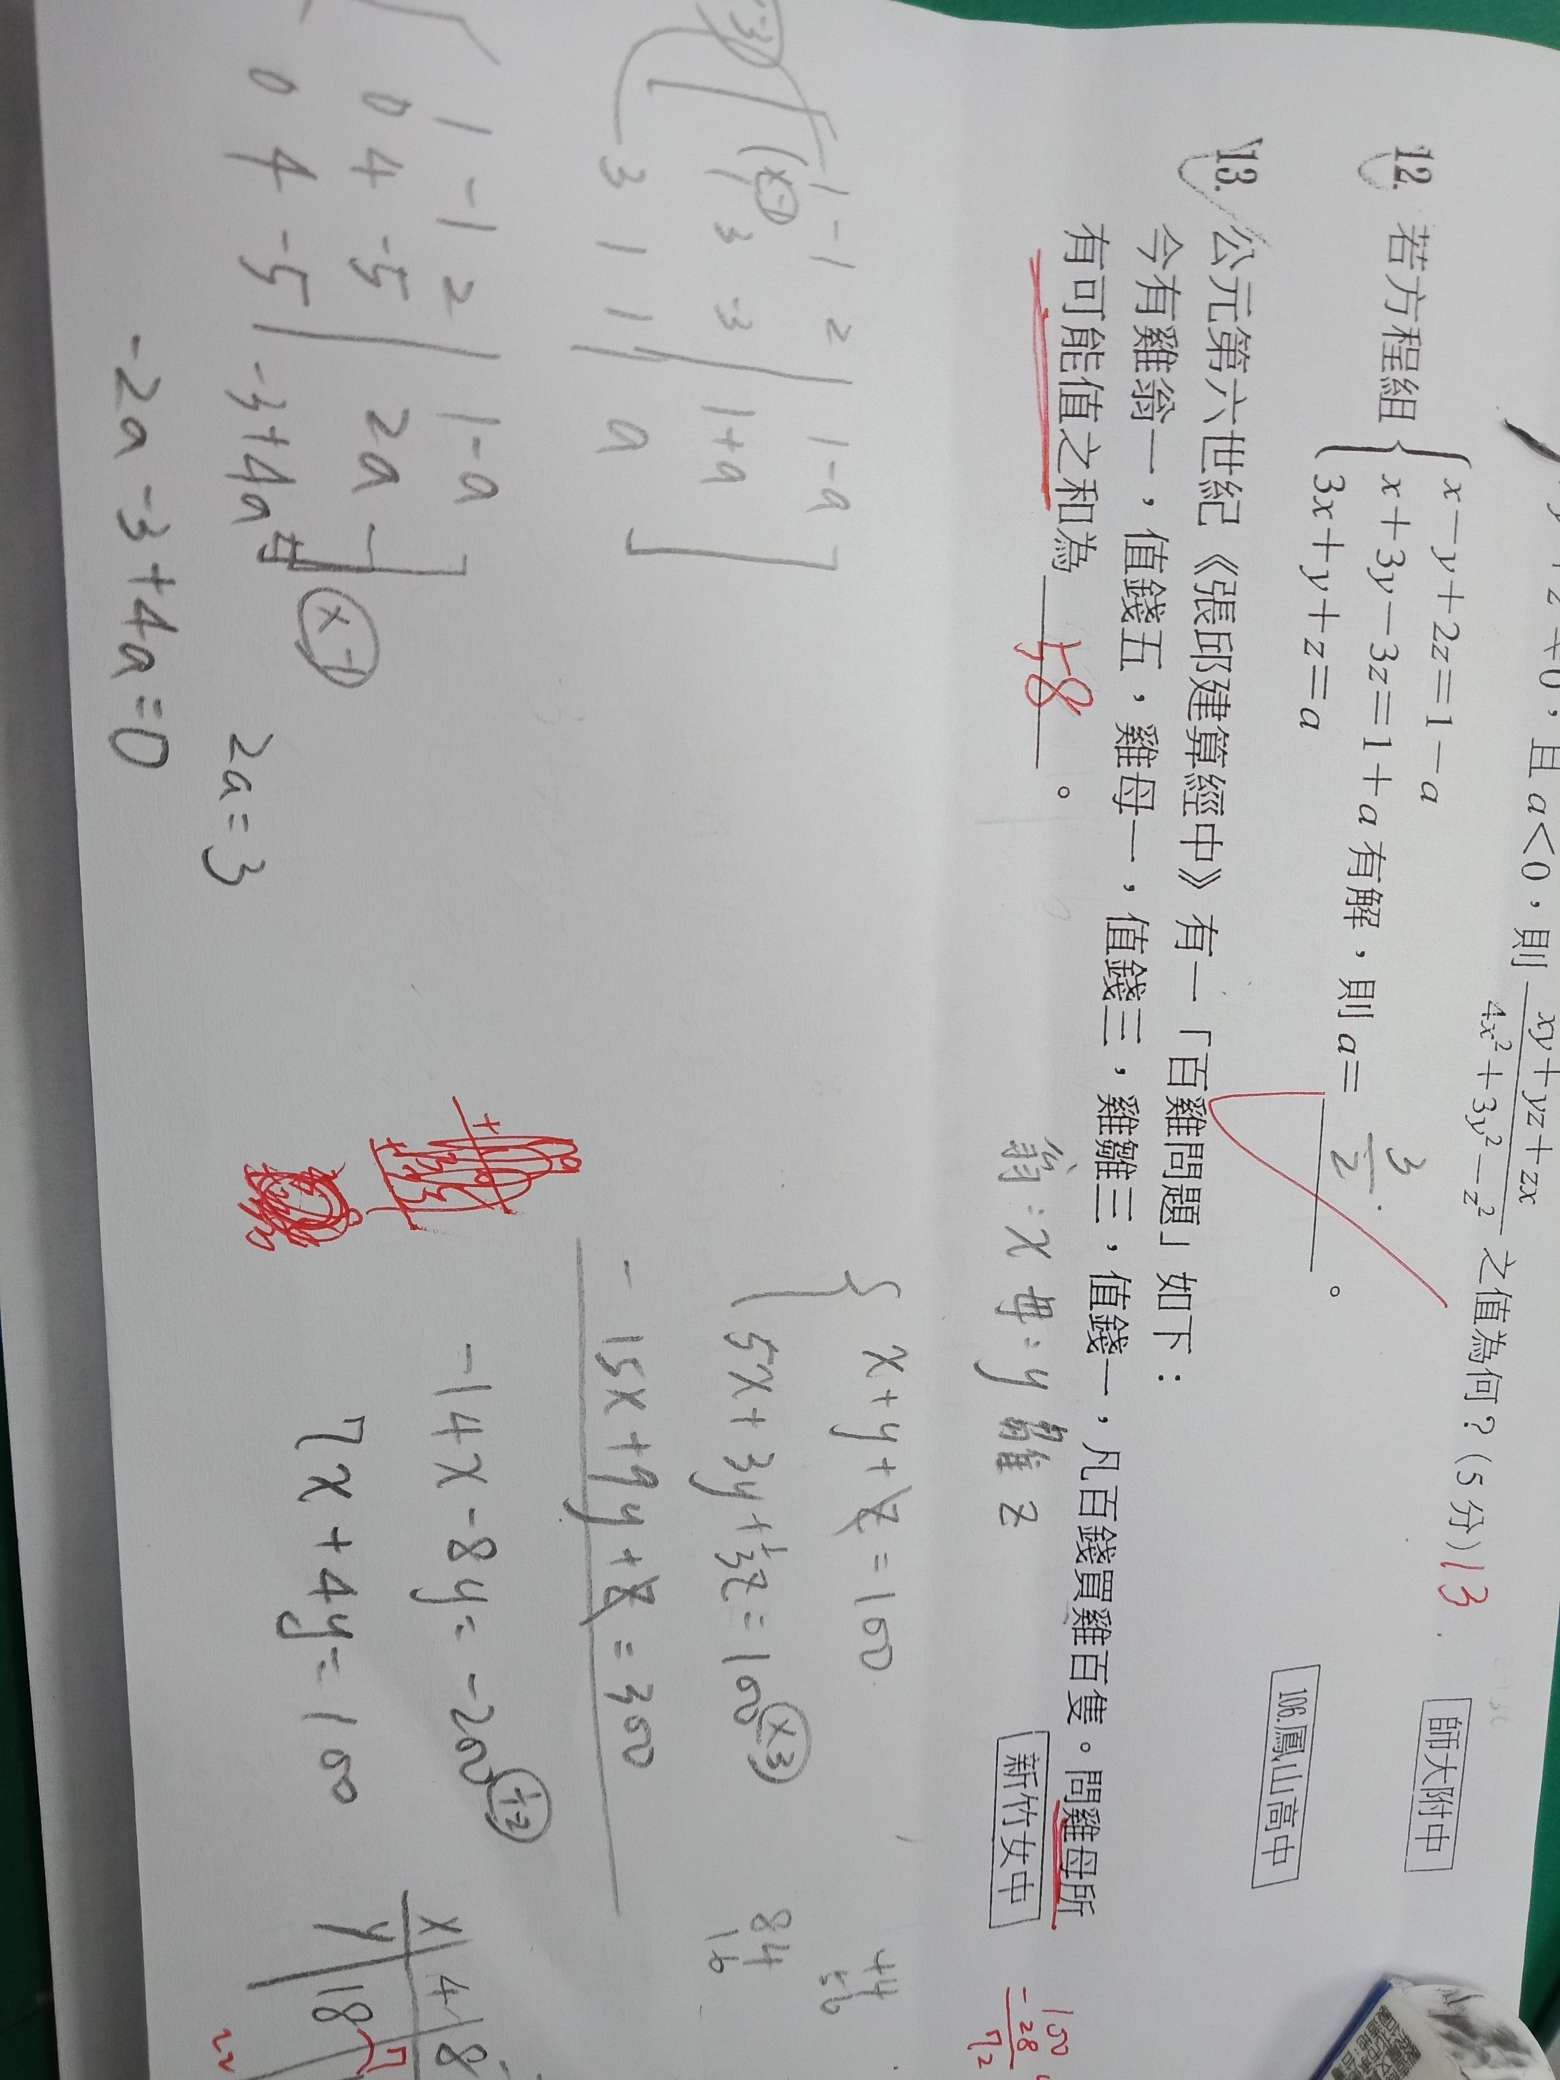 且 a<0，則 xy+yz+zx / 4x²+3y²−z² 之值為何？(5分) 13
師大附中
12. 若方程組 { x−y+2z=1−a
x+3y−3z=1+a 有解，則 a= 3/2 。
3x+y+z=a
106.鳳山高中
13. 公元第六世紀《張邱建算經中》有一「百雞問題」如下：
今有雞翁一，值錢五，雞母一，值錢三，雞雛三，值錢一，凡百錢買雞百隻。問雞母所
有可能值之和為 58 。
新竹女中
翁：x 母：y 雛 z
100
−28
72
1 −1 2 | 1−a
1 3 −3 | 1+a
3 1 1 | a
1 −1 2 | 1−a
0 4 −5 | 2a
0 4 −5 | −3+4a
×−1
−2a−3+4a=0
2a=3
{ x+y+z=100
5x+3y+⅓z=100 ×3
−15x+9y+z=300
−14x−8y=−200 ÷2
7x+4y=100
44
56
84
16
x | 4 | 8
y | 18 |